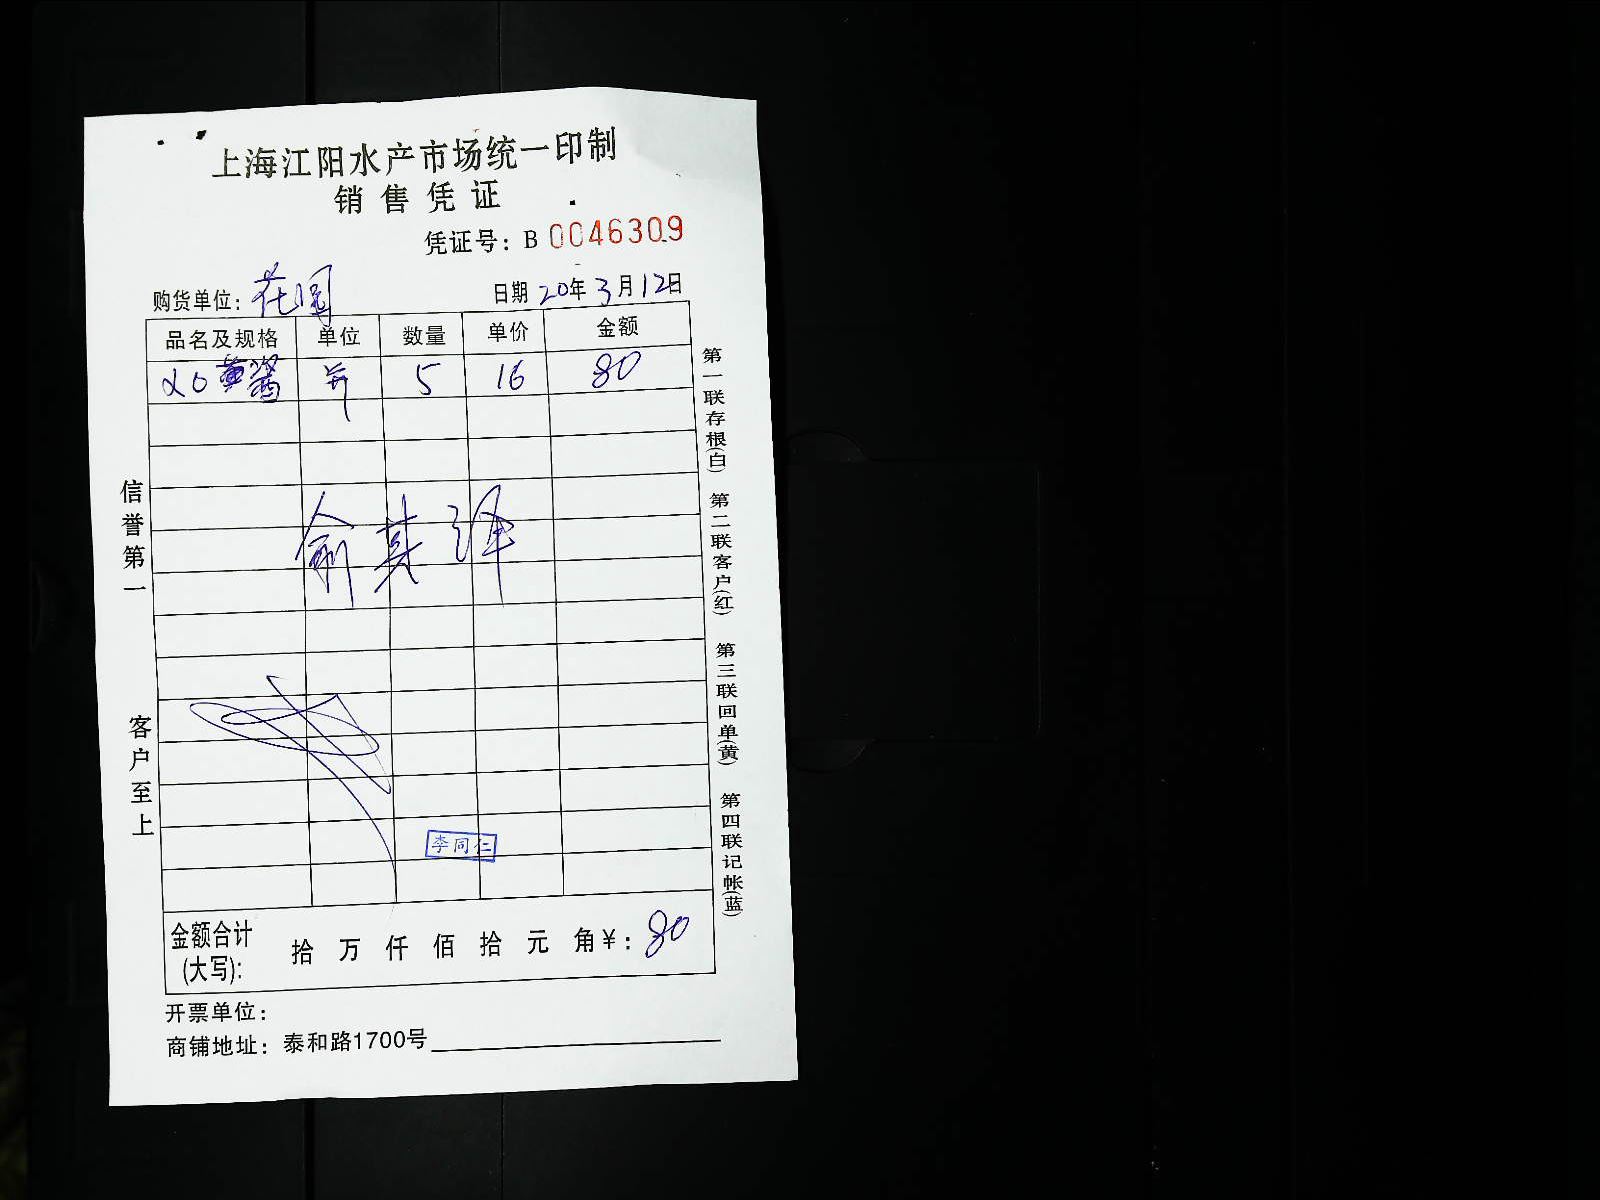 上海江阳水产市场统一印制
销售凭证
凭证号：B 0046309
购货单位：花园 日期 20年3月12日
品名及规格 单位 数量 单价 金额
XO酱 5 16 80
俞其泽
李同仁
金额合计(大写)： 拾 万 仟 佰 拾 元 角 ¥：80
开票单位：
商铺地址：泰和路1700号
信誉第一
客户至上
第一联存根(白)
第二联客户(红)
第三联回单(黄)
第四联记帐(蓝)